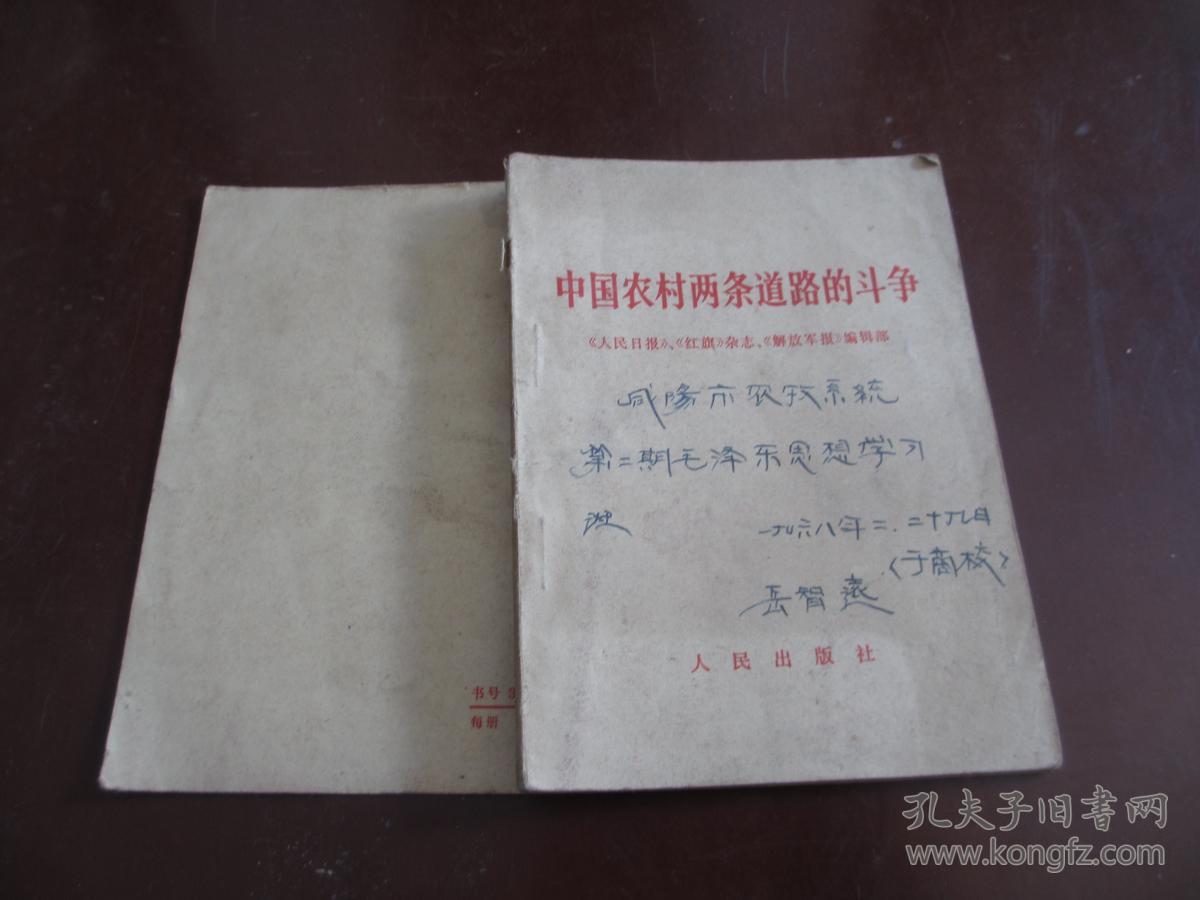 中国农村两条道路的斗争
《人民日报》、《红旗》杂志、《解放军报》编辑部
咸陽市农牧系統
第二期毛泽东思想学习
一九六八年二.二十九日
〈于商校〉
岳智遠
人民出版社
书号 3
每册
孔夫子旧書网
www.kongfz.com